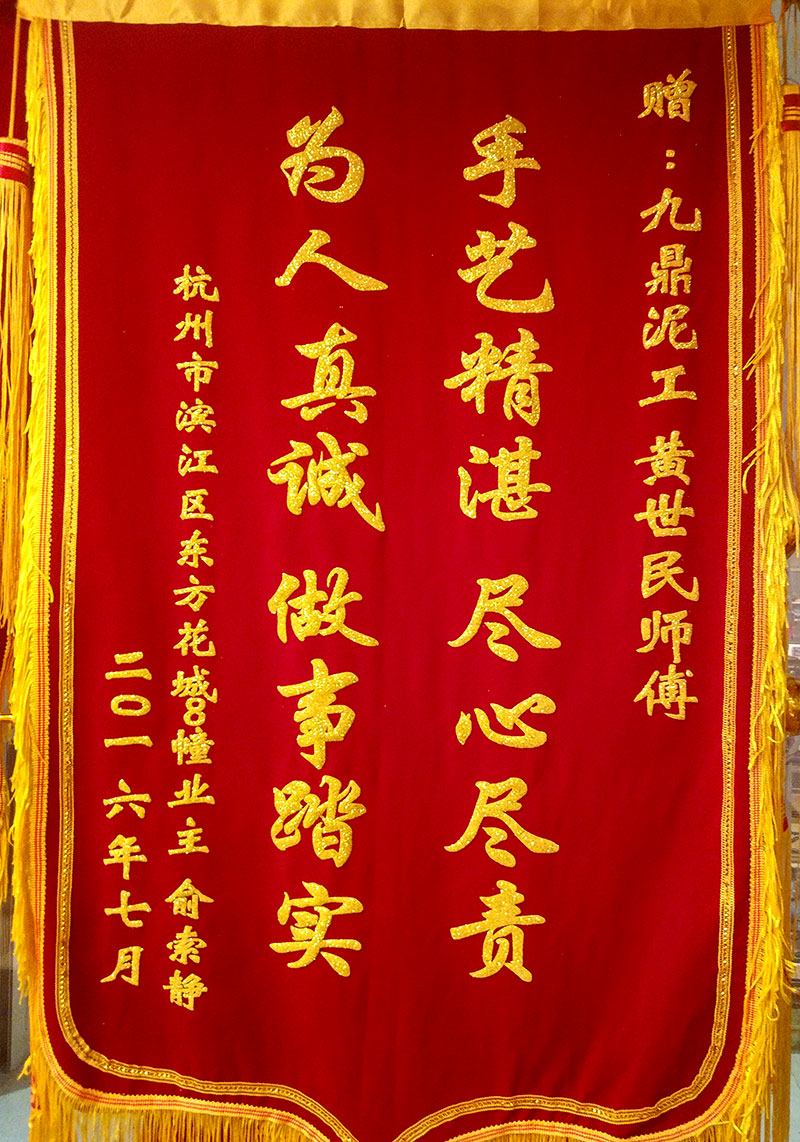 赠：九鼎泥工 黄世民师傅
手艺精湛 尽心尽责
为人真诚 做事踏实
杭州市滨江区东方花城8幢业主 俞索静
二〇一六年七月